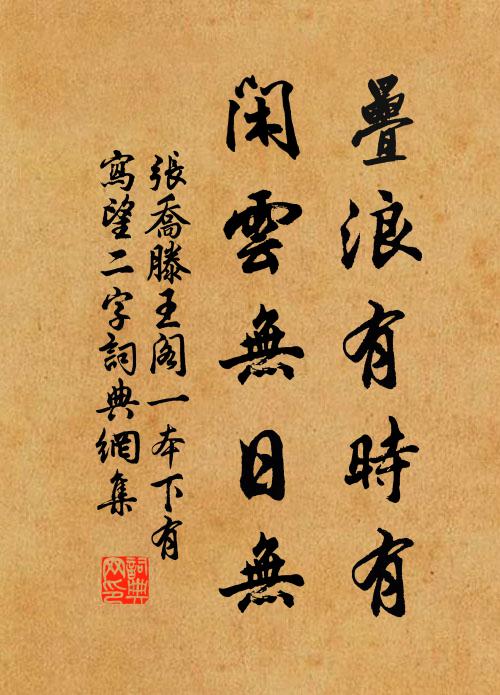 疊浪有時有
閑雲無日無
張喬滕王阁一本下有
寫望二字詞典網集
詞典网印